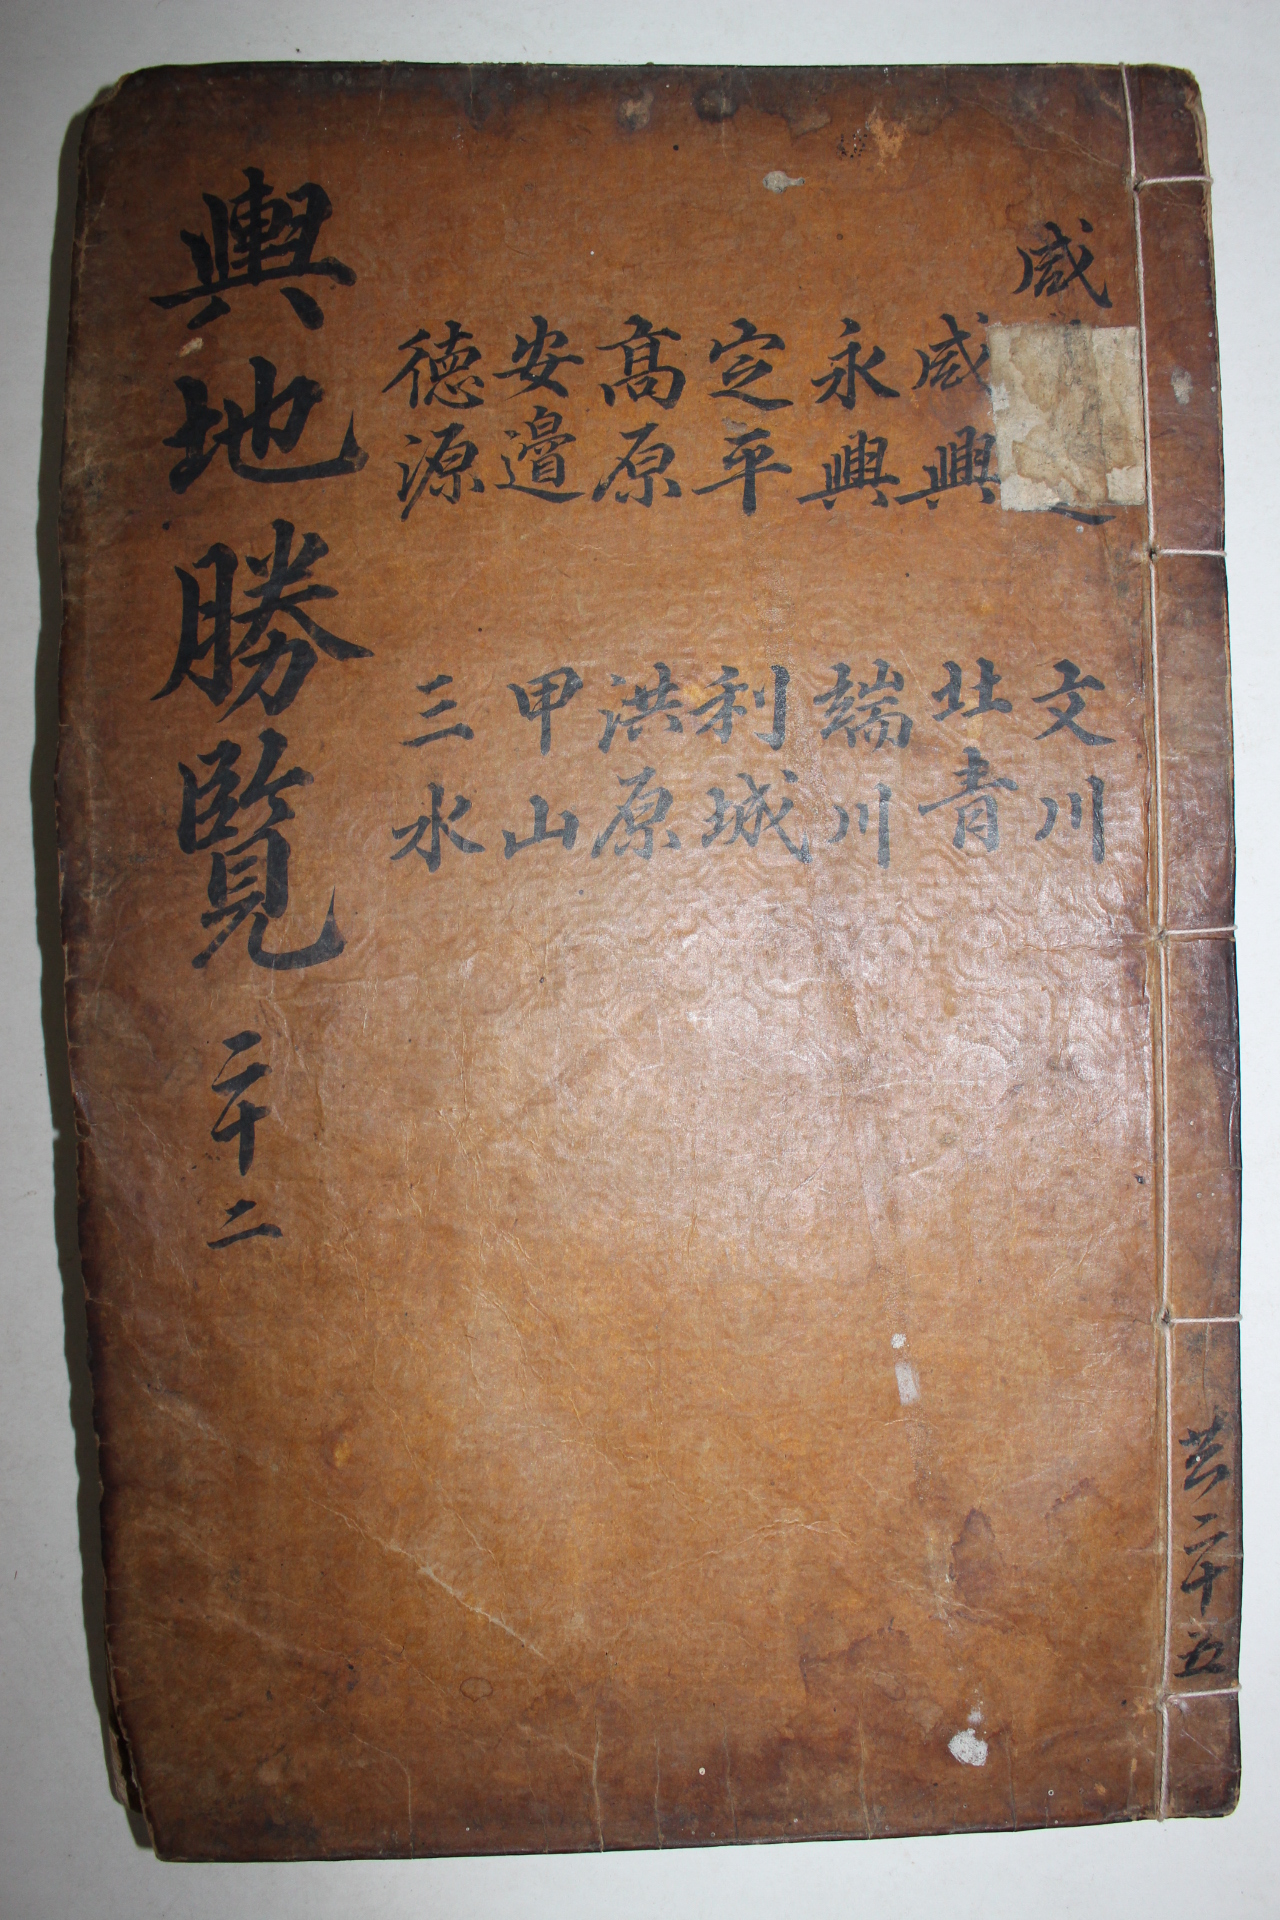 咸
咸興
永興
定平
髙原
安邉
徳源
文川
北青
端川
利城
洪原
甲山
三水
輿地勝覽 二十二
共二十五